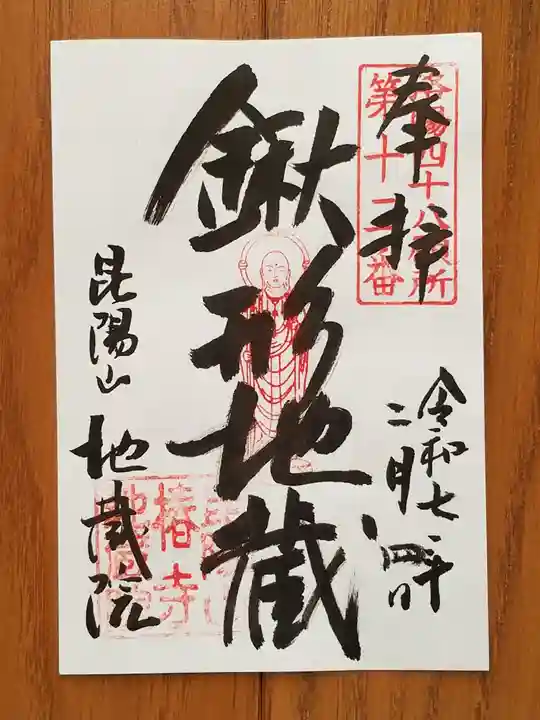 奉拝
洛陽四十八願所
第十二番
令和七年
二月四日
鍬形地蔵
昆陽山
地蔵院
椿寺